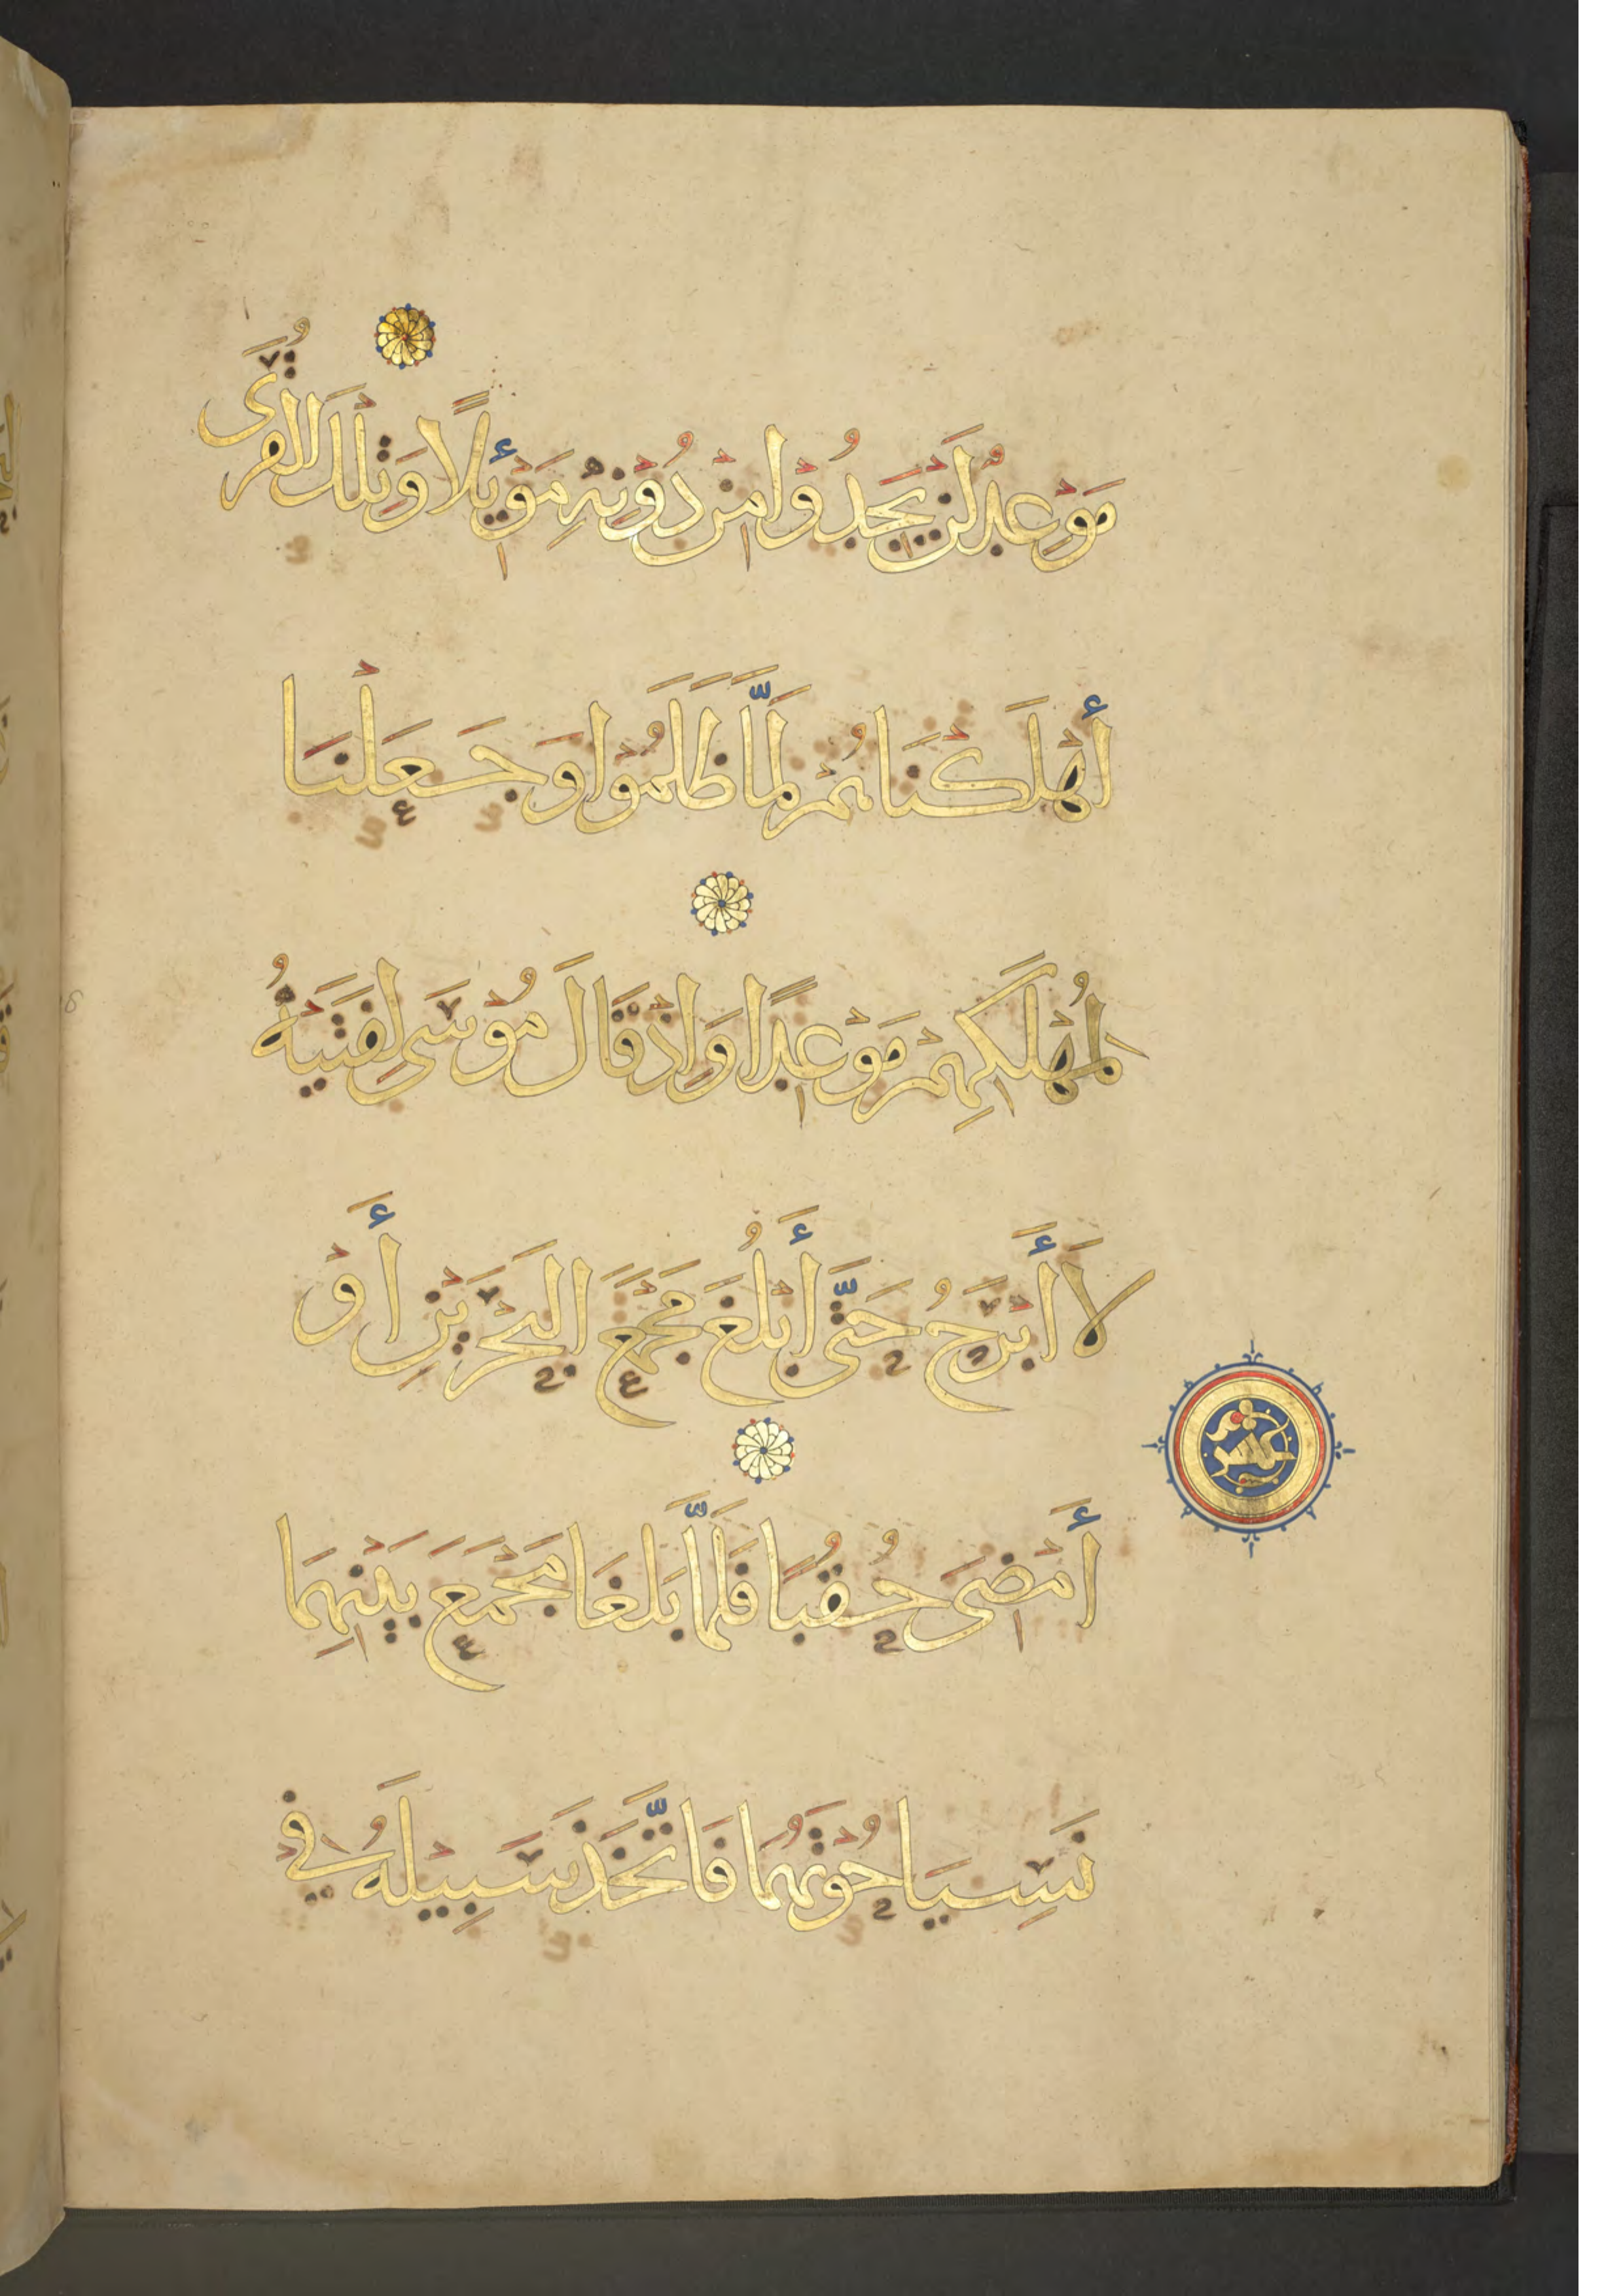 مَوْعِدٌ لَنْ يَجِدُوْا مِنْ دُوْنِهِ مَوْئِلًا وَتِلْكَ القُرَى
أَهْلَكْنَاهُمْ لَمَّا ظَلَمُوْا وَجَعَلْنَا
لِمُهْلَكِهِمْ مَوْعِدًا وَاِذْ قَالَ مُوْسَى لِفَتَيْهُ
لَا أَبْرَحُ حَتَّى أَبْلُغَ مَجْمَعَ البَحْرَيْنِ أَوْ
أَمْضِىَ حُقُبًا فَلَمَّا بَلَغَا مَجْمَعَ بَيْنِهِمَا
عشر
نَسِيَا حُوْتَهُمَا فَاتَّخَذَ سَبِيْلَهُ فِي